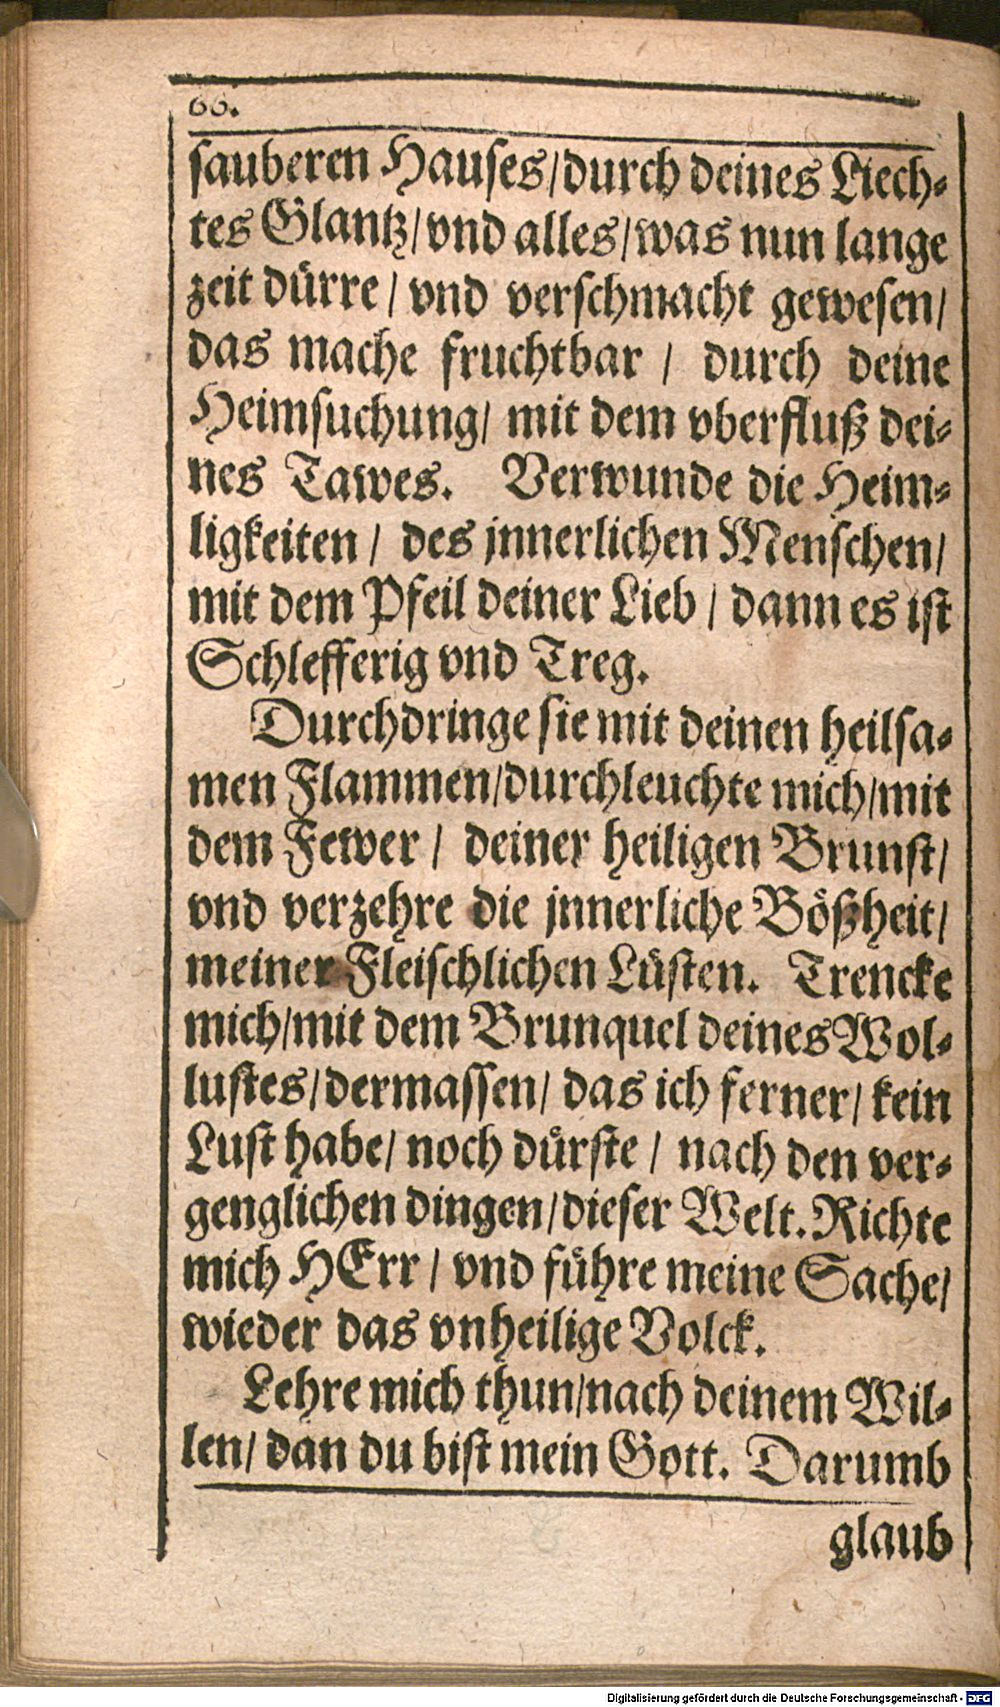 66.
sauberen Hauses/durch deines Liech⸗
tes Glantz/vnd alles/was nun lange
zeit dürre/ vnd verschmacht gewesen/
das mache fruchtbar / durch deine
Heimsuchung/ mit dem vberfluß dei⸗
nes Tawes. Verwunde die Heim⸗
ligkeiten / des jnnerlichen Menschen/
mit dem Pfeil deiner Lieb / dann es ist
Schlefferig vnd Treg.
Durchdringe sie mit deinen heilsa⸗
men Flammen/durchleuchte mich/mit
dem Fewer / deiner heiligen Brunst/
vnd verzehre die jnnerliche Bößheit/
meiner Fleischlichen Lüsten. Trencke
mich/mit dem Brunquel deines Wol⸗
lustes/dermassen/ das ich ferner/ kein
Lust habe/ noch dürste / nach den ver⸗
genglichen dingen/dieser Welt. Richte
mich HErr / vnd führe meine Sache/
wieder das vnheilige Volck.
Lehre mich thun/nach deinem Wil⸗
len/ dan du bist mein Gott. Darumb
glaub
Digitalisierung gefördert durch die Deutsche Forschungsgemeinschaft - DFG